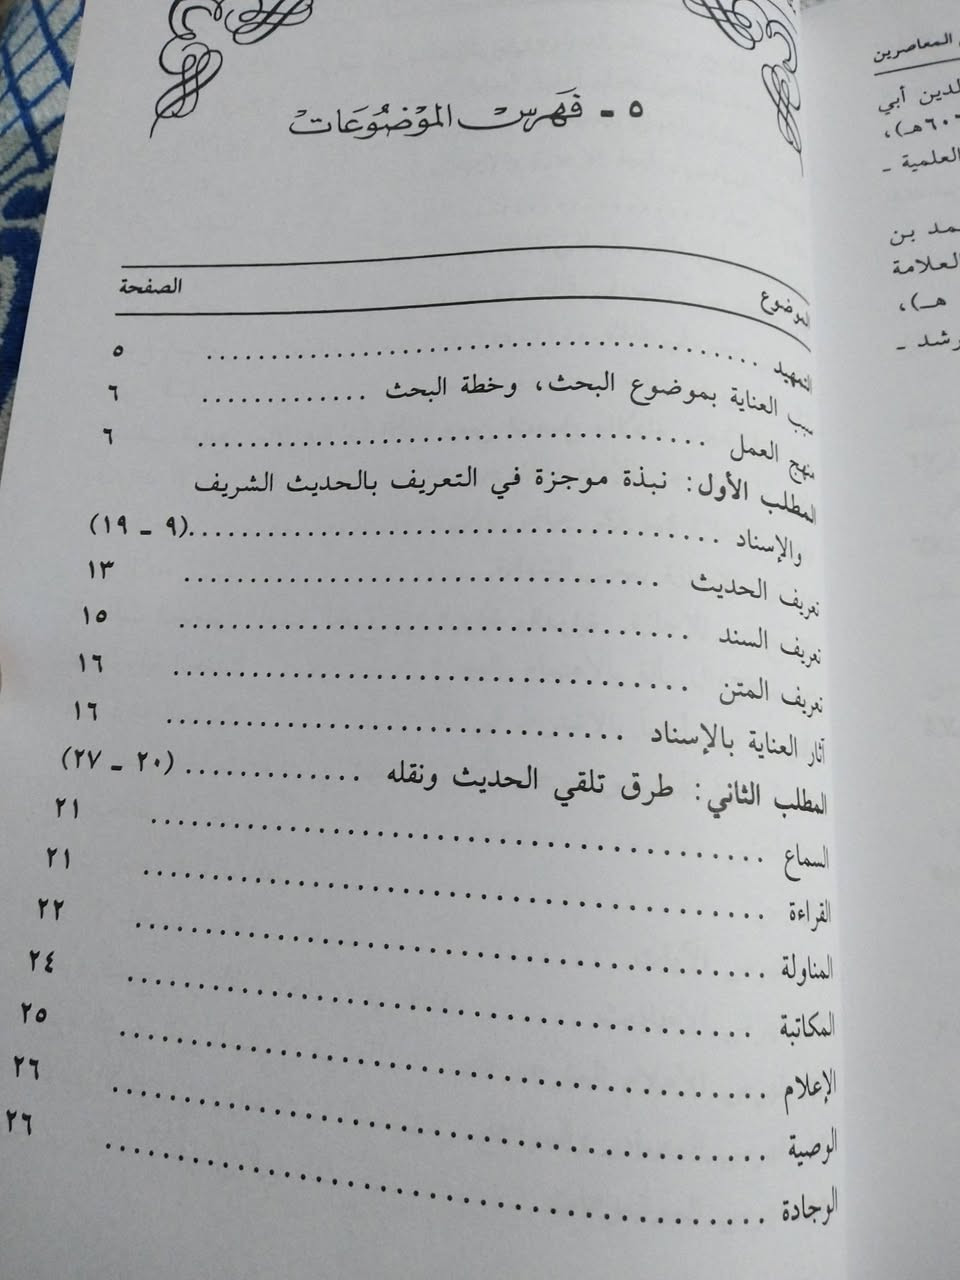 ٥ - فَهَرس الموْضُوعَات
الموضوع الصفحة
التمهيد ........................................ ٥
سبب العناية بموضوع البحث، وخطة البحث ............. ٦
منهج العمل ........................................ ٦
المطلب الأول: نبذة موجزة في التعريف بالحديث الشريف
والإسناد ........................................ (٩ - ١٩)
تعريف الحديث ........................................ ١٣
تعريف السند ........................................ ١٥
تعريف المتن ........................................ ١٦
آثار العناية بالإسناد ........................................ ١٦
المطلب الثاني: طرق تلقي الحديث ونقله ............. (٢٠ - ٢٧)
السماع ........................................ ٢١
القراءة ........................................ ٢١
المناولة ........................................ ٢٢
المكاتبة ........................................ ٢٤
الإعلام ........................................ ٢٥
الوصية ........................................ ٢٦
الوجادة ........................................ ٢٦
المعاصرين
الدين أبي
٦٠٦هـ)،
العلمية -
بن
العلامة
هـ)،